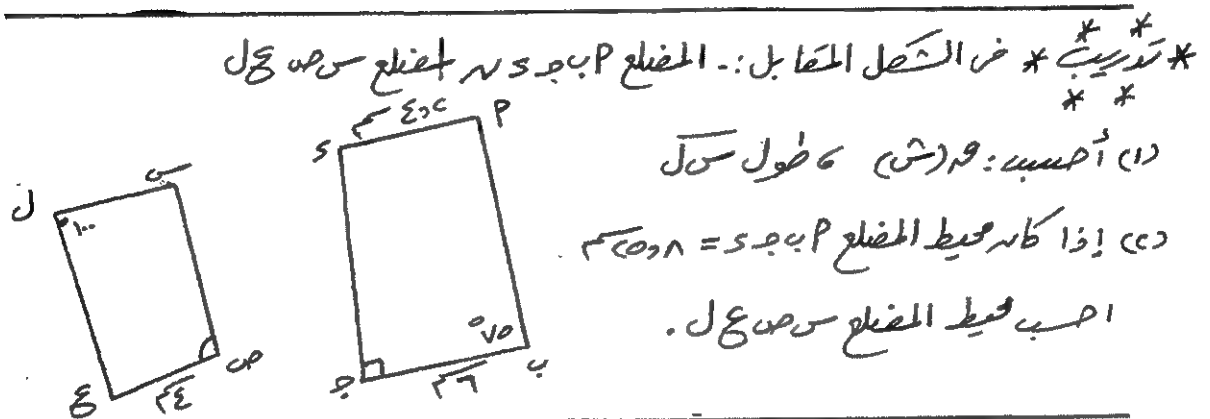 * تدريب * فى الشكل المقابل :- المضلع P ب جـ s ~ المضلع س ص ع ل
(١) أحسب : ق(ش) ، طول س ل
(٢) إذا كان محيط المضلع P ب جـ s =
احسب محيط المضلع س ص ع ل .
P
s
ب
جـ
٧٥°
٦سم
س
ل
١٠٠°
ص
ع
٤سم